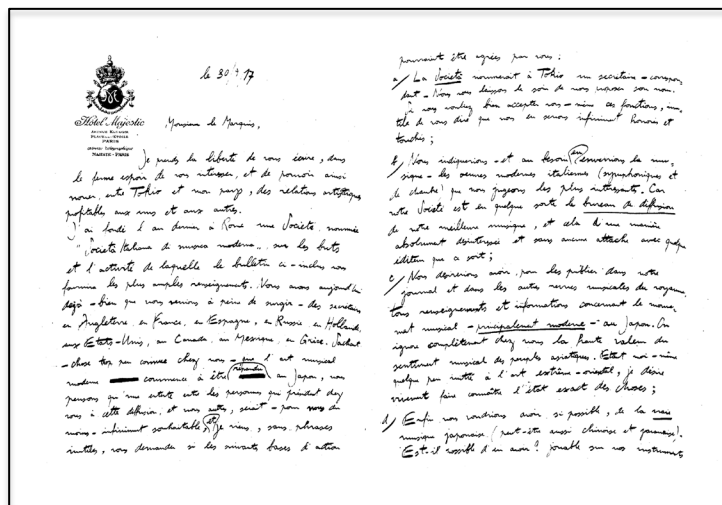 Hôtel Majestic
AVENUE KLÉBER
PARIS
MAJESTIC - PARIS
le 30/ 17
Monsieur le Marquis,
Je prends la liberté de vous écrire, dans
le ferme espoir de vous intéresser, et de pouvoir ainsi
nouer, entre Tokio et mon pays, des relations artistiques
profitables aux uns et aux autres.
J'ai fondé l'an dernier à Rome une Société, nommée
"Società Italiana di musica moderna", sur les buts
et l'activité de laquelle le bulletin ci-inclus vous
fournira les plus amples renseignements. Nous avons aujourd'hui
déjà - bien que nous venions à peine de surgir - des secrétaires
en Angleterre, en France, en Espagne, en Russie, en Hollande,
aux Etats-Unis, au Canada, au Mexique, en Grèce. Sachant
- chose trop peu connue chez nous - que l'art musical
moderne commence à être répandu au Japon, nous
pensons qu'une entente entre les personnes qui président chez
vous à cette diffusion, et nous autres, serait - pour nous du
moins - infiniment souhaitable et je viens, sans phrases
inutiles, vous demander si les suivantes bases d'action
pourraient être agréées par vous :
a/ La Société nommerait à Tokio un secrétaire-correspon
dant - Nous vous laissons le soin de nous proposer son nom.
Si vous vouliez bien accepter vous-même ces fonctions, inu
tile de vous dire que nous en serions infiniment honorés et
touchés ;
b/ Nous indiquerions - et au besoin en enverrions la mu
sique - les oeuvres modernes italiennes (symphoniques et
de chambre) que nous jugeons les plus intéressantes. Car
notre Société est en quelque sorte le bureau de diffusion
de notre meilleure musique, et cela d'une manière
absolument désintéressée et sans aucune attache avec quelque
éditeur que ce soit ;
c/ Nous désirerions avoir, pour les publier dans notre
journal et dans les autres revues musicales du royaume,
tous renseignements et informations concernant le mouve
ment musical - principalement moderne - au Japon. On
ignore complètement chez nous la haute valeur du
sentiment musical des peuples asiatiques. Etant moi-même
quelque peu initié à l'art extrême-oriental, je désire
vivement faire connaître l'état exact des choses ;
d/ Enfin nous voudrions avoir, si possible, de la
musique japonaise (peut-être aussi chinoise et javanaise).
Est-il possible d'en avoir ? jouable sur nos instruments